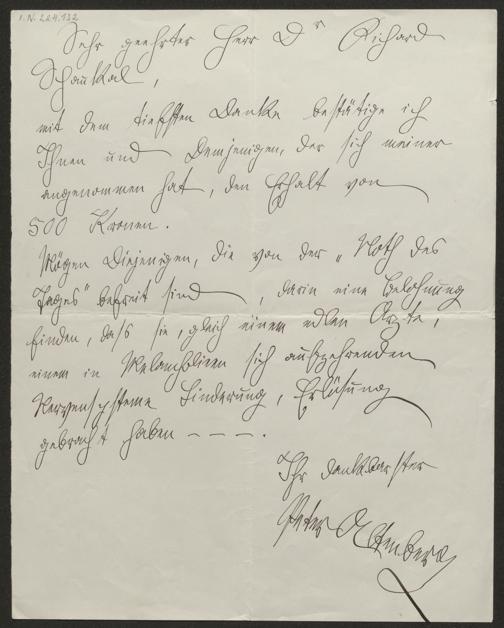 I.N. 224.132
Sehr geehrter Herr Dr Richard
Schaukal,
mit dem tiefsten Danke bestätige ich
Ihnen und Demjenigen, der sich meiner
angenommen hat, den Erhalt von
500 Kronen.
Mögen Diejenigen, die von der „Noth des
Tages" befreit sind, darin eine Belohnung
finden, dass sie, gleich einem edlen Arzte,
einem in Melancholieen sich aufzehrenden
Nervensysteme Linderung, Erlösung
gebracht haben – – – –.
Ihr dankbarster
Peter Altenberg